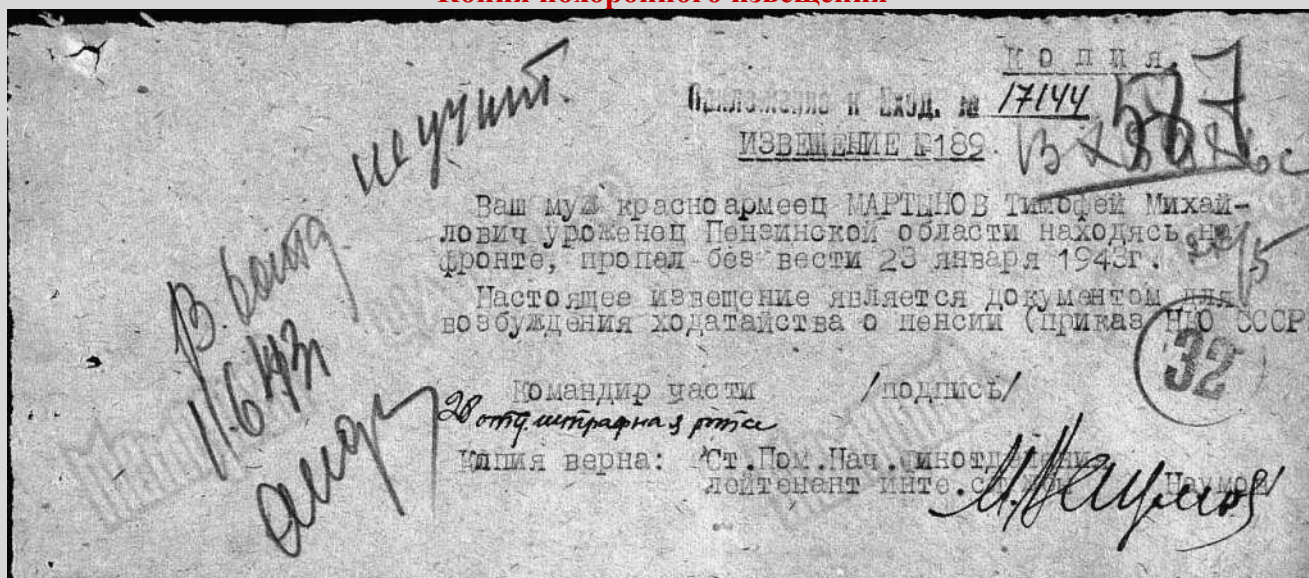 Копия похоронного извещения
КОПИЯ.
Приложение к Вход. № 17144
ИЗВЕЩЕНИЕ №189.
неучит.
Ваш муж красноармеец МАРТЫНОВ Тимофей Михай-
лович уроженец Пензинской области находясь на
фронте, пропал без вести 23 января 1943г.
Настоящее извещение является документом для
возбуждения ходатайства о пенсии (приказ НКО СССР
32
Командир части /подпись/
28 отд. штрафная рота
Копия верна: Ст.Пом.Нач.финотделени
лейтенант инте.службы Наумов/
11.6.43